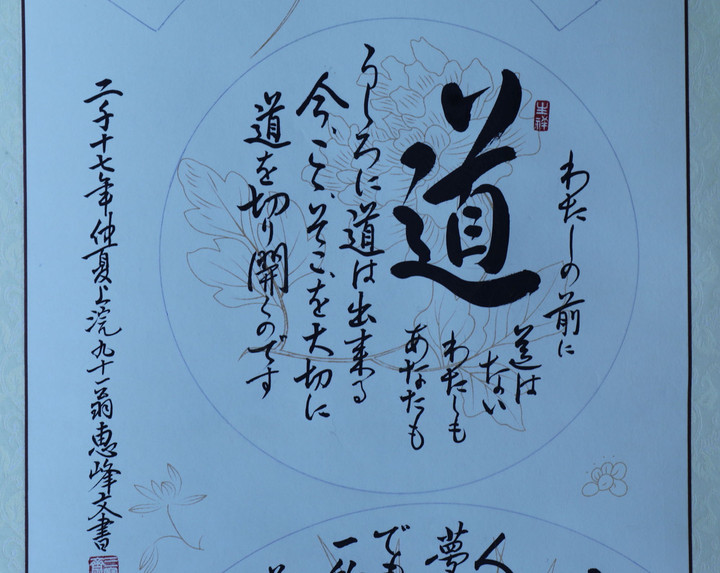 道
わたしの前に
道は
ない
わたしも
あなたも
うしろに道は出来る
今、こゝ、そこ、を大切に
道を切り開くのです
二千十七年仲夏上浣九十一翁恵峰文書
人
夢
でも
一